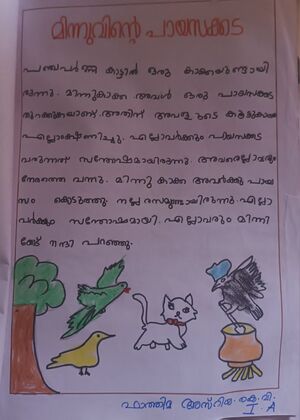 മിന്നുവിന്റെ പായസക്കട
ഒരു കാക്കയുണ്ടായി
രുന്നു. മിന്നുകാക്ക അവൾ ഒരു പായസക്കട
തുറക്കുകയാണ്. അതിന് അവളുടെ കൂട്ടുകാരെ
എല്ലാം ക്ഷണിച്ചു. എല്ലാവർക്കും പായസക്കട
വരുന്നത് സന്തോഷമായിരുന്നു. അവരെല്ലാവരും
നേരത്തെ വന്നു. മിന്നു കാക്ക അവർക്കു പായ
സം കൊടുത്തു. നല്ല രസമുണ്ടായിരുന്നു. എല്ലാ
വർക്കും സന്തോഷമായി. എല്ലാവരും മിന്നി
ക്ക് നന്ദി പറഞ്ഞു.
ഫാത്തിമ അസ്‌റിയ. കെ. വി.
I A